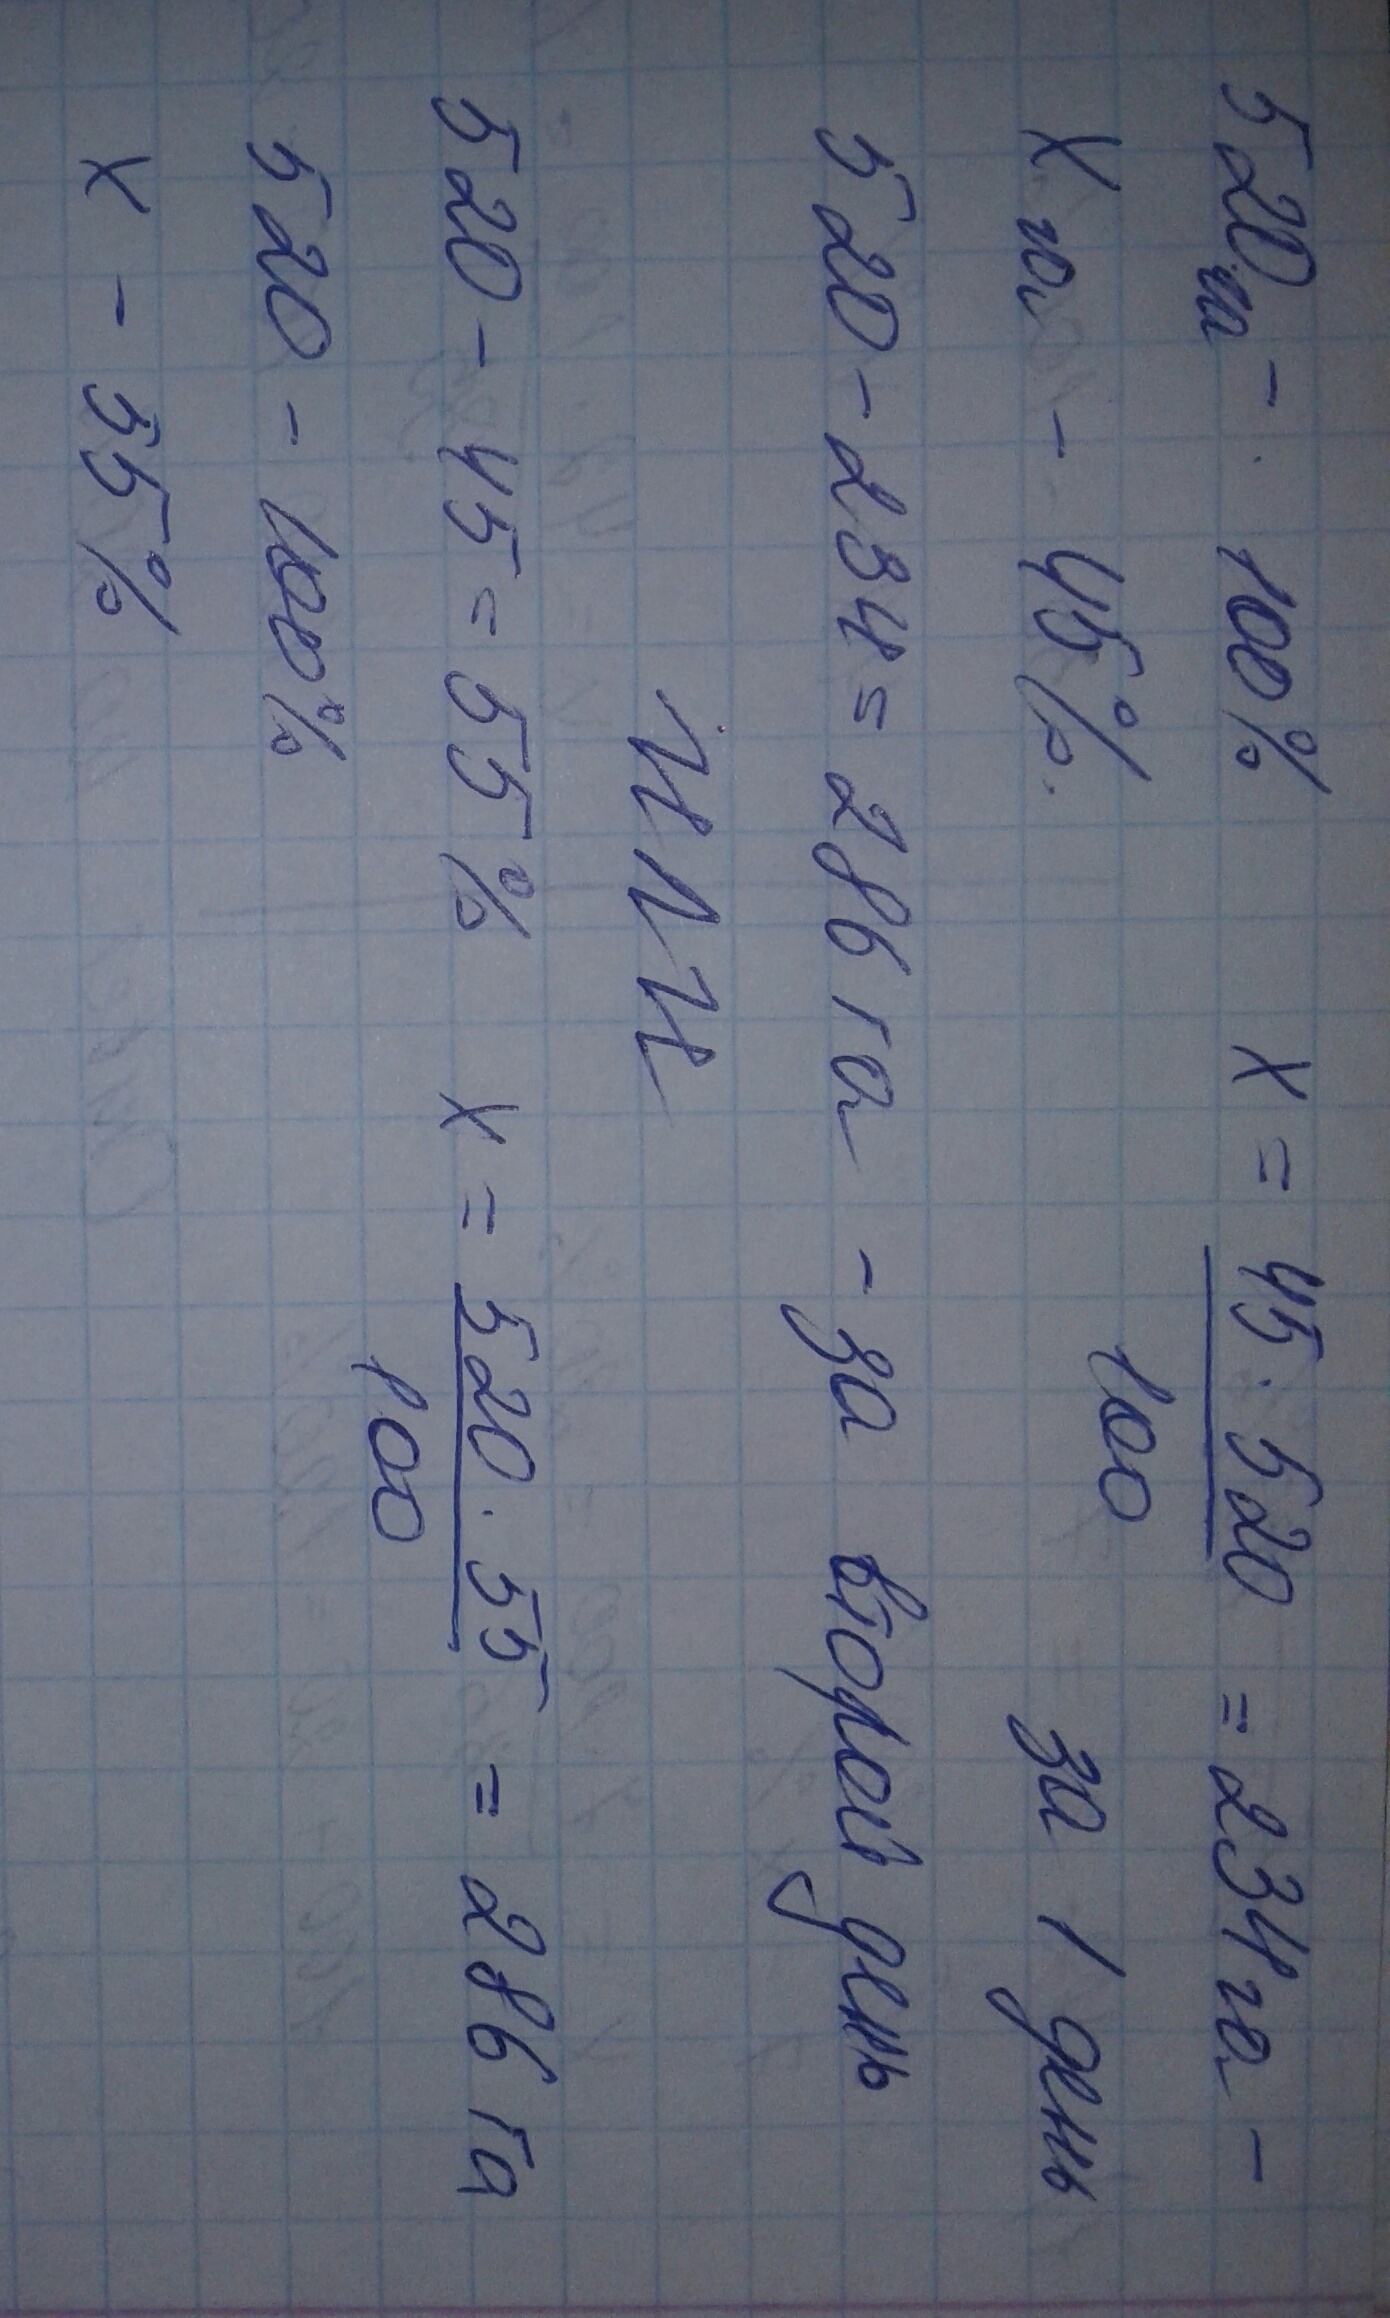 520 га - 100% x = 45 · 520 = 234 га -
100
x га - 45%. за 1 день
520 - 234 = 286 га - за второй день
ИЛИ
520 - 45 = 55% x = 520 · 55 = 286 га
100
520 - 100%
x - 55%